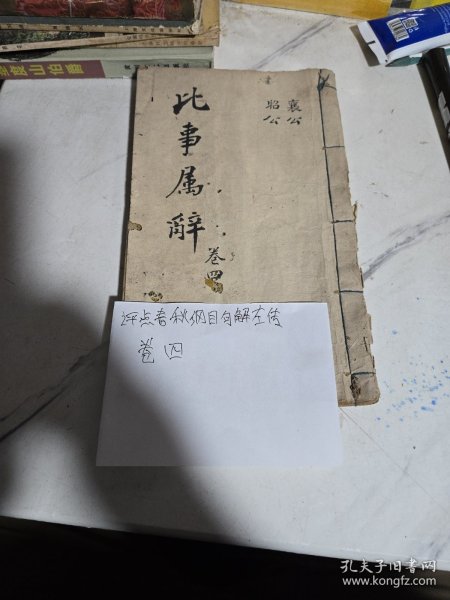 襄公
昭公
比事属辞
卷四
评点春秋纲目句解左传
卷四
孔夫子旧书网
www.kongfz.com